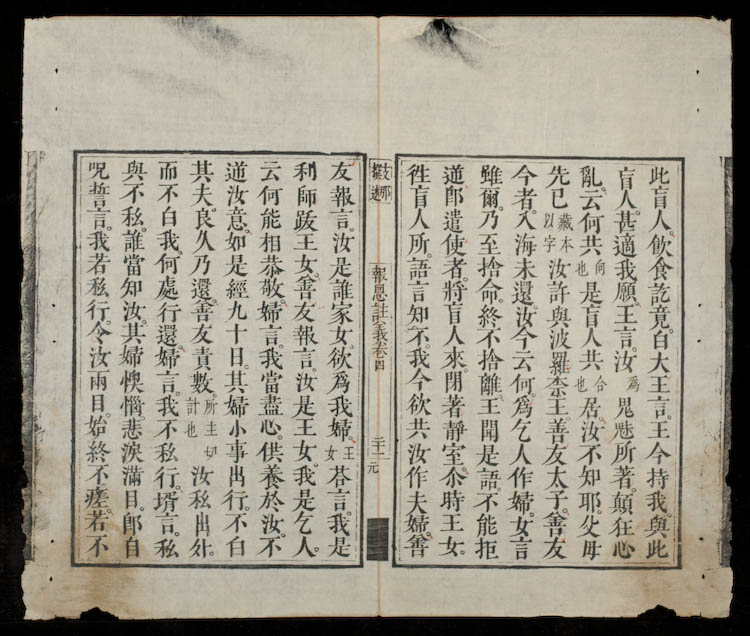 此盲人。飲食訖竟。白大王言。王今持我。與此
盲人。甚適我願。王言。汝為鬼魅所著。顛狂心
亂。云何共向也是盲人共合也居。汝不知耶。父母
先已藏本以字汝許與波羅柰王善友太子。善友
今者。入海未還。汝今云何。為乞人作婦。女言
雖爾。乃至捨命。終不捨離。王聞是語。不能拒
逆。即遣使者。將盲人來。閉著靜室。尒時王女。
徃盲人所。語言知不。我今欲共汝作夫婦。善
報恩經註義卷四
二十二
元
支那
撰述
友報言。汝是誰家女。欲為我婦。王女荅言。我是
利師跋王女。善友報言。汝是王女。我是乞人。
云何能相恭敬。婦言。我當盡心。供養於汝。不
逆汝意。如是經九十日。其婦小事出行。不白
其夫。良久乃還。善友責數。所主切計也汝私出外。
而不白我。何處行還。婦言。我不私行。壻言。私
與不私。誰當知汝。其婦懊惱。悲淚滿目。即自
呪誓言。我若私行。令汝兩目。始終不瘥。若不